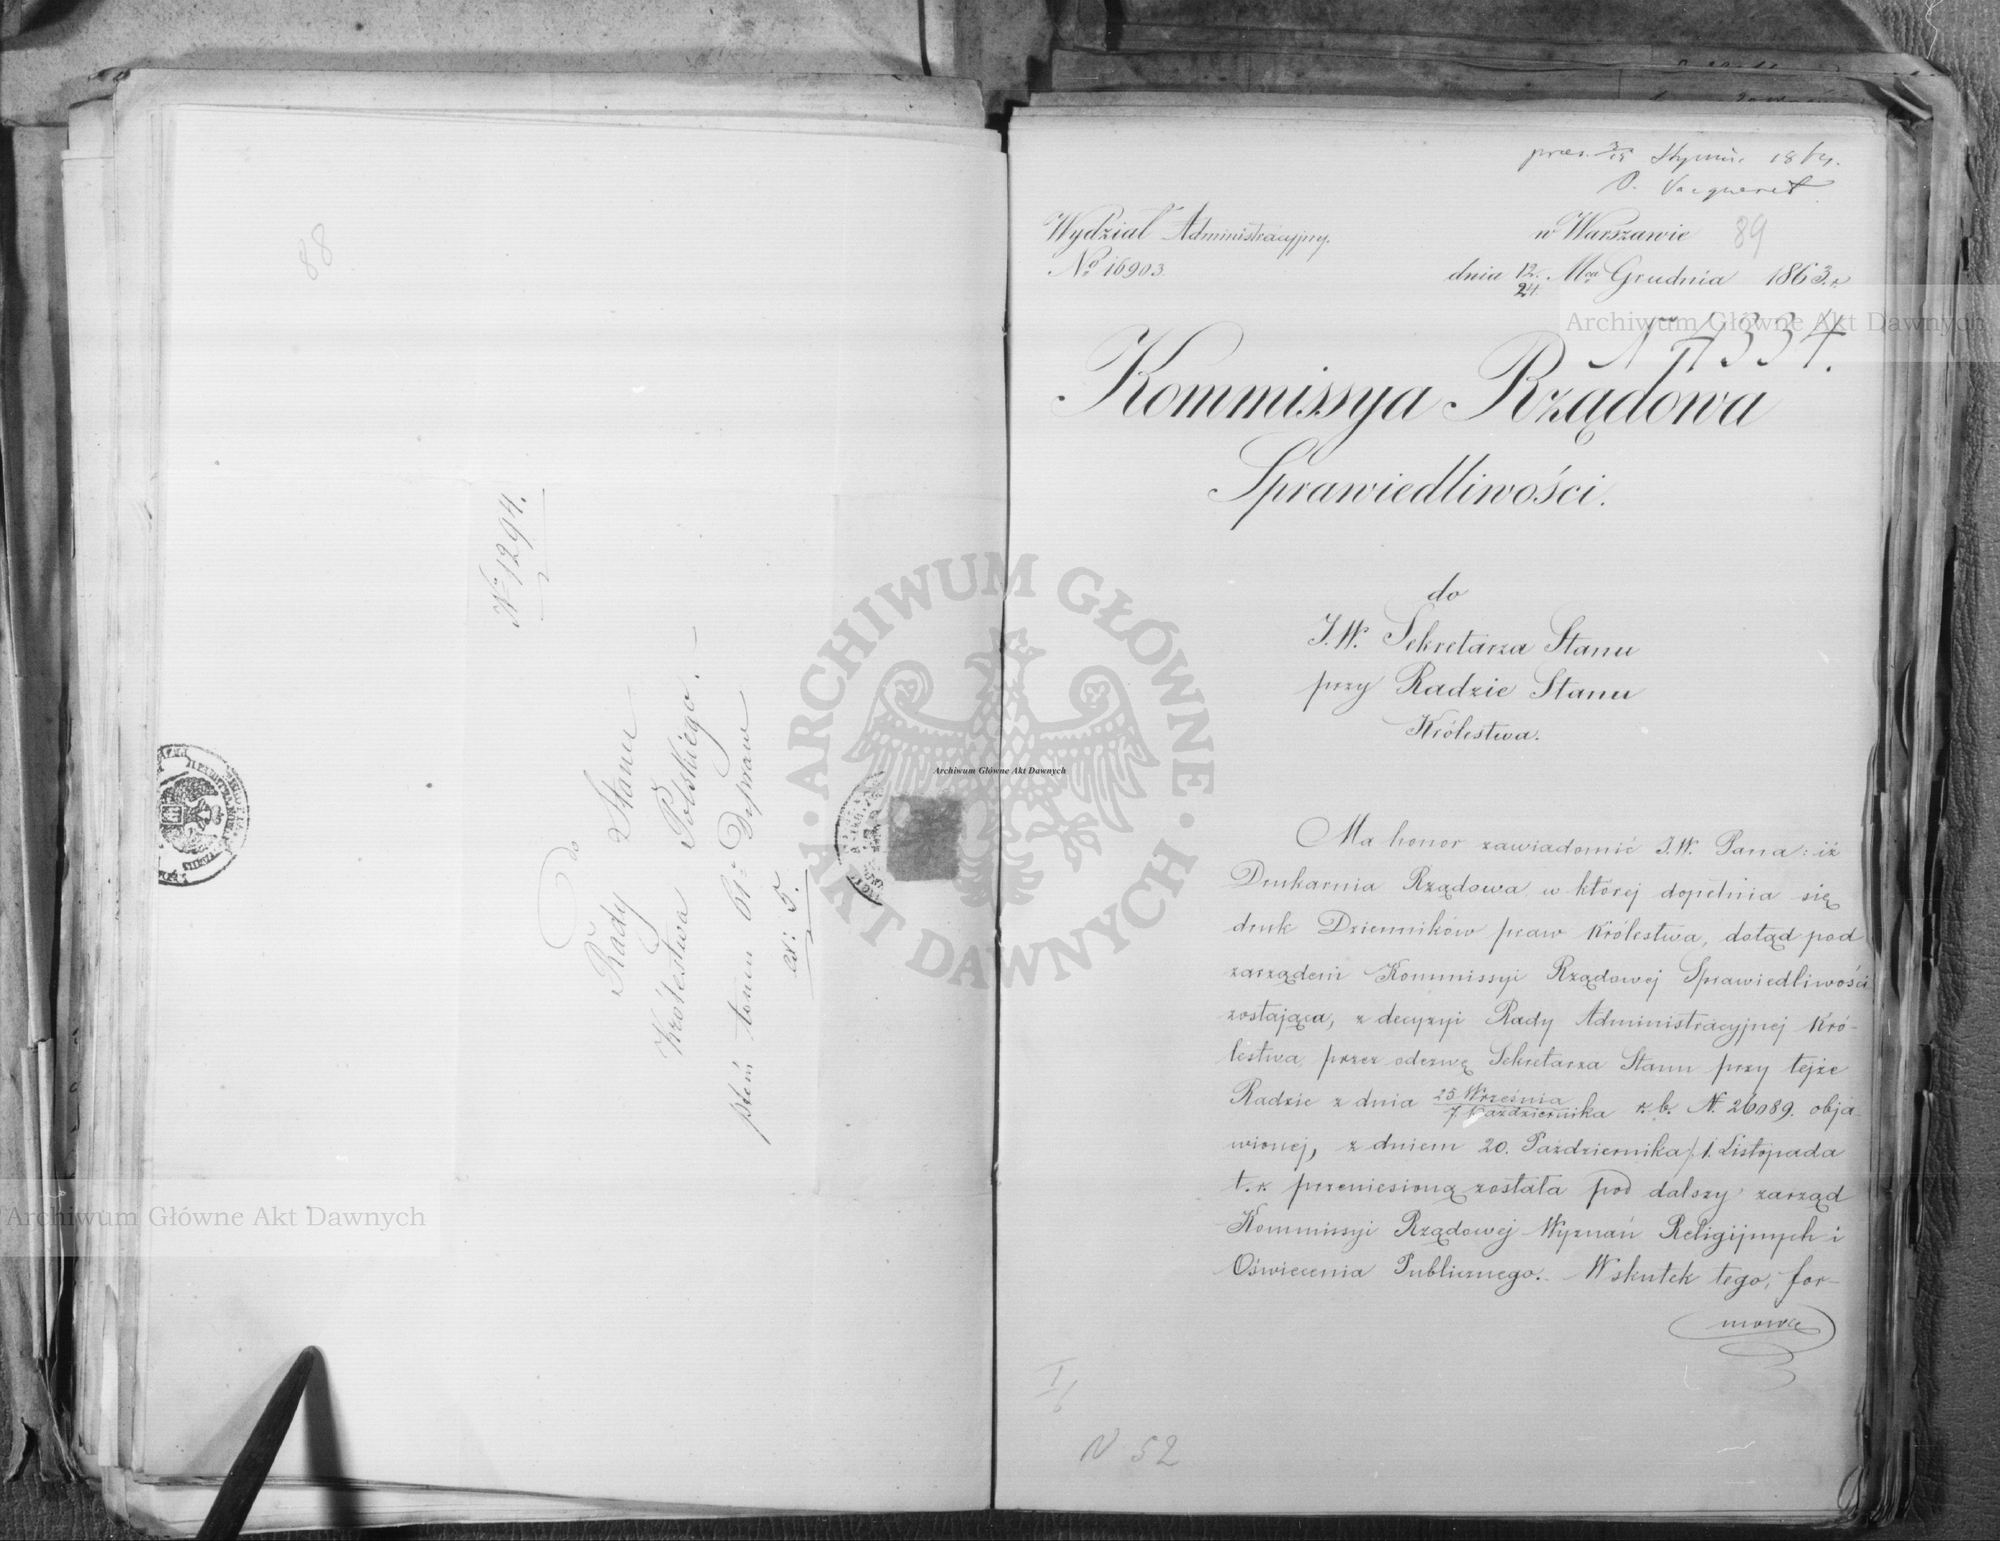 88
Nº 1294.
do
Rady Stanu
Królestwa Polskiego. —
tomu 61º Dz praw
ex: 5.
prez. 3/15 Stycznia 1864.
Wydział Administracyjny.
w Warszawie 89
Nº 16903.
dnia 12/24. Mca Grudnia 1863. r.
Nº 4334.
Kommissya Rządowa
Sprawiedliwości.
do
J. W. Sekretarza Stanu
przy Radzie Stanu
Królestwa.
Ma honor zawiadomić J. W. Pana: iż
Drukarnia Rządowa w której dopełnia się
druk Dzienników praw Królestwa, dotąd pod
zarządem Kommissyi Rządowej Sprawiedliwości
zostająca, z decyzyi Rady Administracyjnej Kró-
lestwa, przez odezwę Sekretarza Stanu przy tejże
Radzie z dnia 25 Września/7 Października r. b. N. 26089. obja-
wionej, z dniem 20. Października/1. Listopada
t. r. przeniesioną została pod dalszy zarząd
Kommissyi Rządowej Wyznań Religijnych i
Oświecenia Publicznego. Wskutek tego, for-
mowa
I/6
N 52
Archiwum Główne Akt Dawnych
Archiwum Główne Akt Dawnych
Archiwum Główne Akt Dawnych
ARCHIWUM GŁÓWNE AKT DAWNYCH